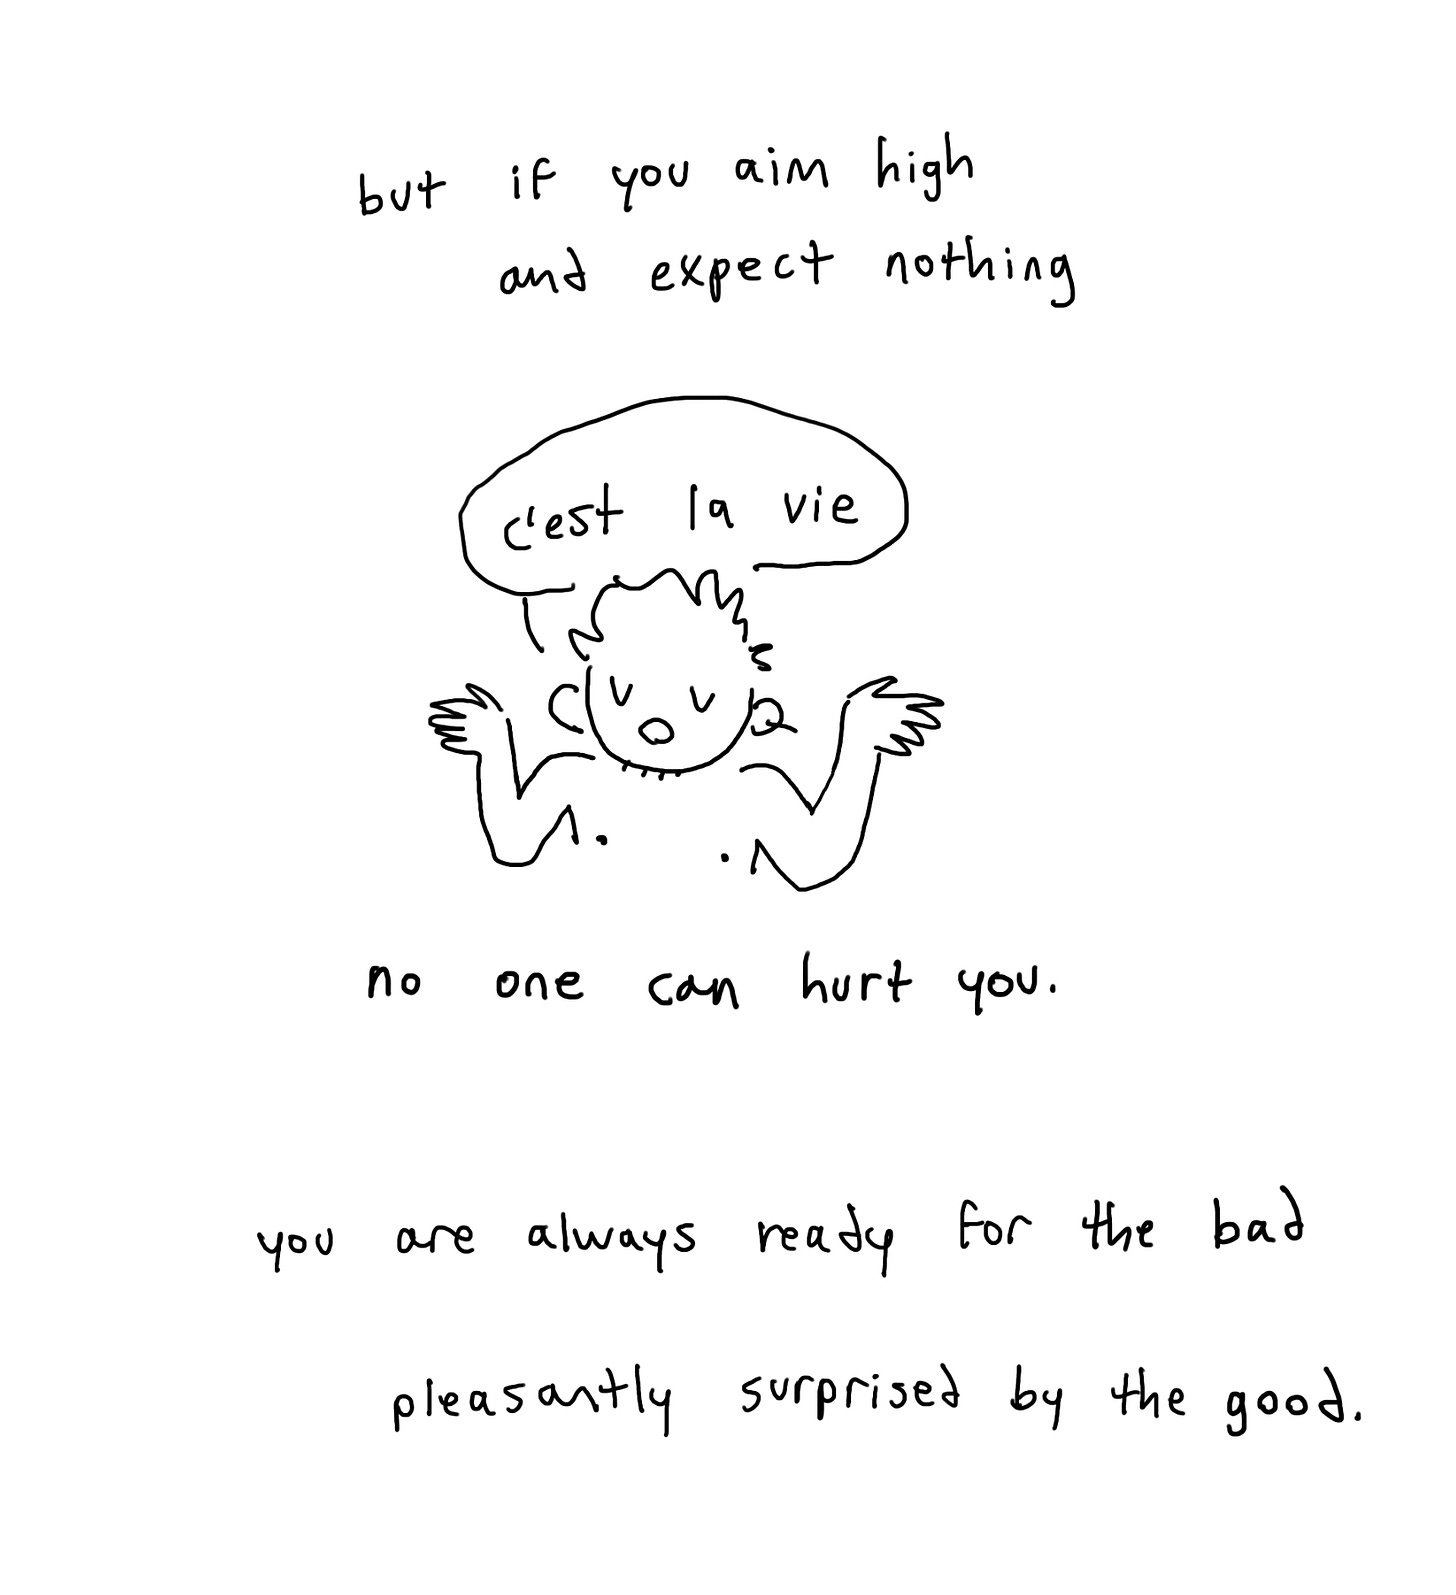 but if you aim high
and expect nothing
c'est la vie
no one can hurt you.
you are always ready for the bad
pleasantly surprised by the good.